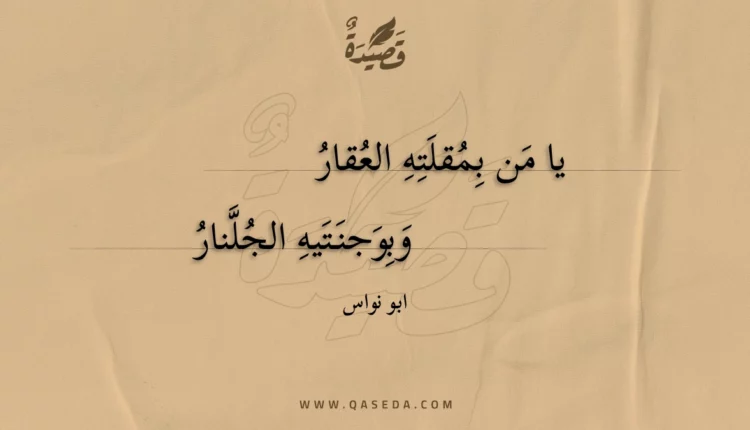 قَصِيدَةٌ
يا مَن بِمُقلَتِهِ العُقارُ
وَبِوَجنَتَيهِ الجُلَّنارُ
ابو نواس
WWW.QASEDA.COM